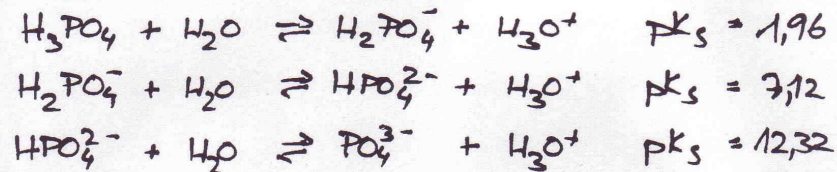 H₃PO₄ + H₂O ⇌ H₂PO₄⁻ + H₃O⁺ pKs = 1,96
H₂PO₄⁻ + H₂O ⇌ HPO₄²⁻ + H₃O⁺ pKs = 7,12
HPO₄²⁻ + H₂O ⇌ PO₄³⁻ + H₃O⁺ pKs = 12,32